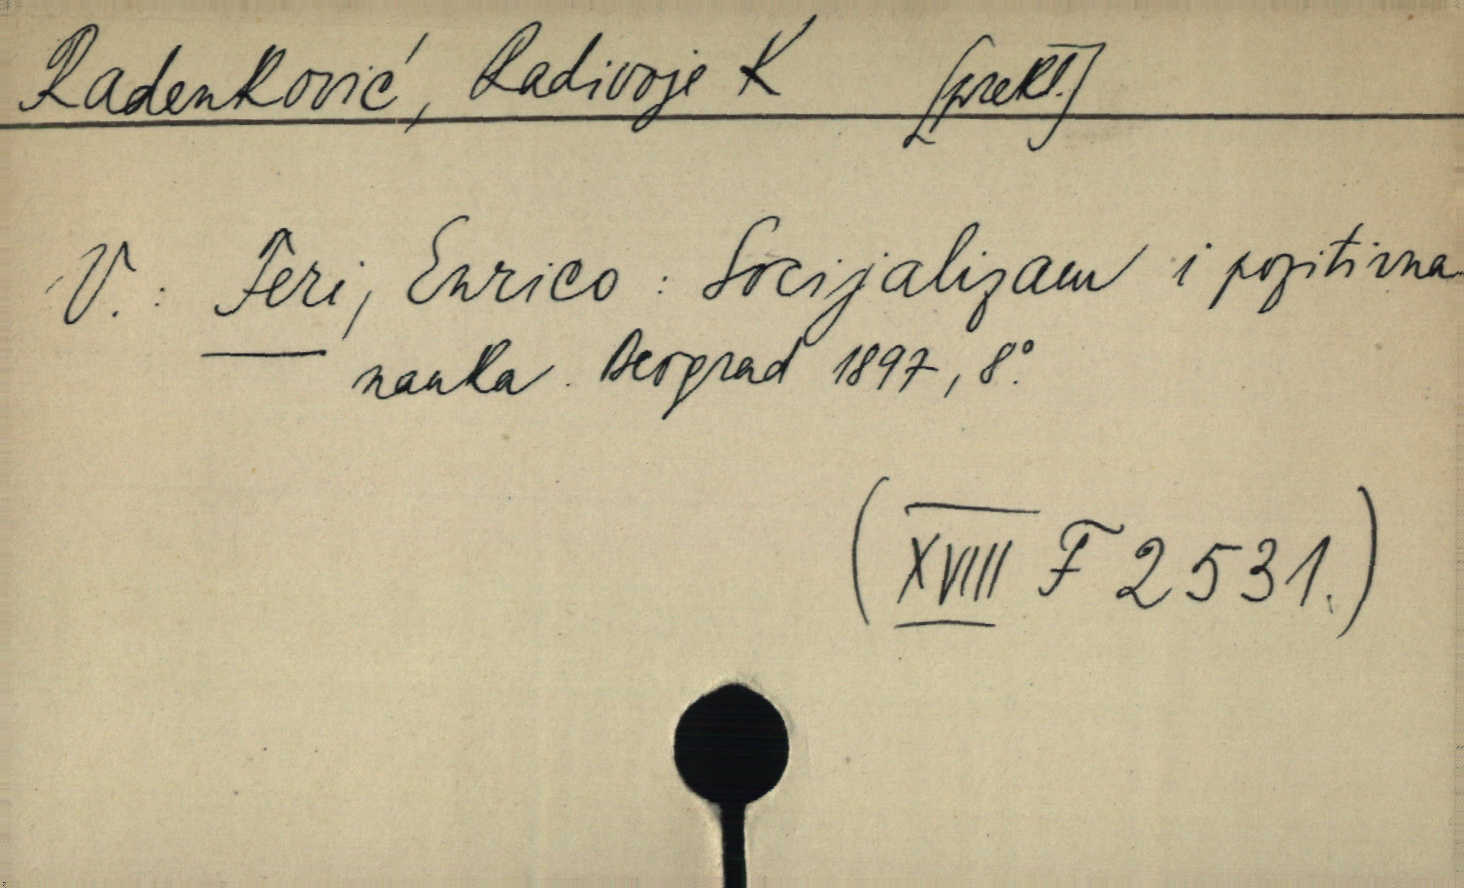 Radenković, Radivoje K [prekl.]
V.: Feri, Enrico: Socijalizam i pozitivna
nauka. Beograd 1897, 8°.
(XVIII F 2531.)